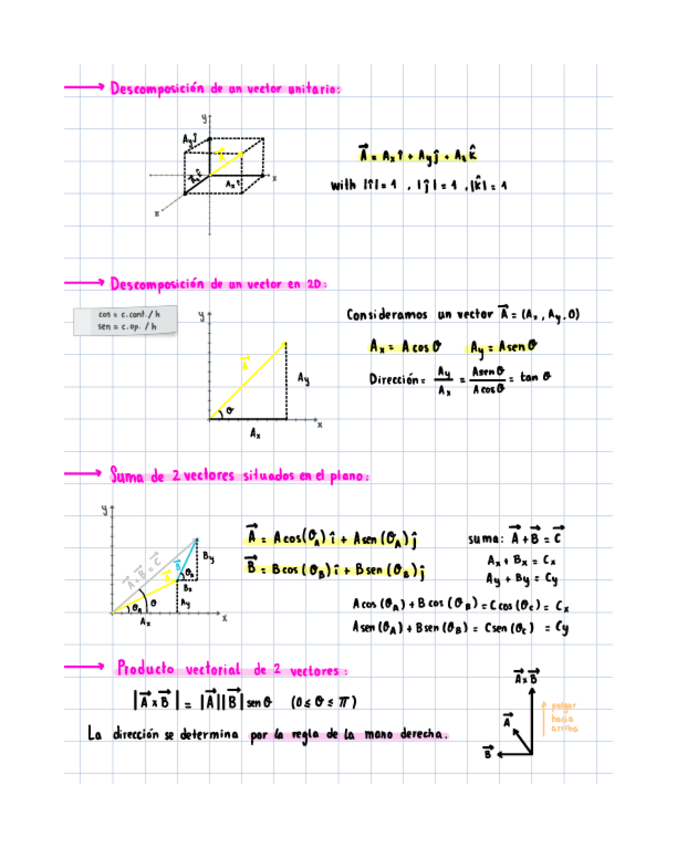 → Descomposición de un vector unitario:
y
Ay ĵ
A⃗
Az k̂
Ax î
x
z
A⃗ = Ax î + Ay ĵ + Az k̂
with |î| = 1 , |ĵ| = 1 , |k̂| = 1
→ Descomposición de un vector en 2D:
cos = c.cont. / h
sen = c.op. / h
y
A⃗
Ay
θ
Ax
x
Consideramos un vector A⃗ = (Ax, Ay, 0)
Ax = A cos θ Ay = A sen θ
Dirección = Ay / Ax = A sen θ / A cos θ = tan θ
→ Suma de 2 vectores situados en el plano:
y
A⃗ + B⃗ = C⃗
B⃗
By
θB
Bx
A⃗
θA
θ
Ay
Ax
x
A⃗ = A cos(θA) î + A sen (θA) ĵ
B⃗ = B cos (θB) î + B sen (θB) ĵ
suma: A⃗ + B⃗ = C⃗
Ax + Bx = Cx
Ay + By = Cy
A cos (θA) + B cos (θB) = C cos (θC) = Cx
A sen (θA) + B sen (θB) = C sen (θC) = Cy
→ Producto vectorial de 2 vectores:
|A⃗ x B⃗| = |A⃗||B⃗| sen θ (0 ≤ θ ≤ π)
La dirección se determina por la regla de la mano derecha.
A⃗ x B⃗
A⃗
B⃗
pulgar
hacia
arriba